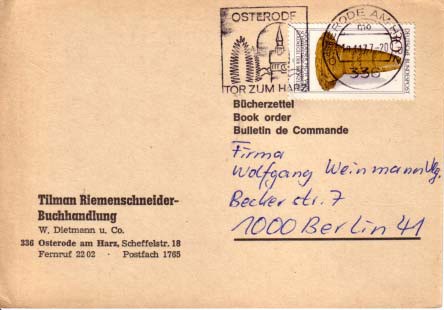 OSTERODE
TOR ZUM HARZ
OSTERODE AM HARZ
336
DEUTSCHE BUNDESPOST
Bücherzettel
Book order
Bulletin de Commande
Firma
Wolfgang Weinmann Vlg.
Becker str. 7
1000 Berlin 41
Tilman Riemenschneider-
Buchhandlung
W. Dietmann u. Co.
336 Osterode am Harz, Scheffelstr. 18
Fernruf 22 02 · Postfach 1765